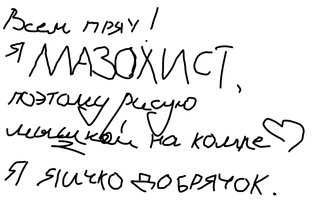 Всем пряч!
Я МАЗОХИСТ,
поэтому рисую
мышкой на компе♡
Я ЯИЧКО ДОБРЯЧОК.